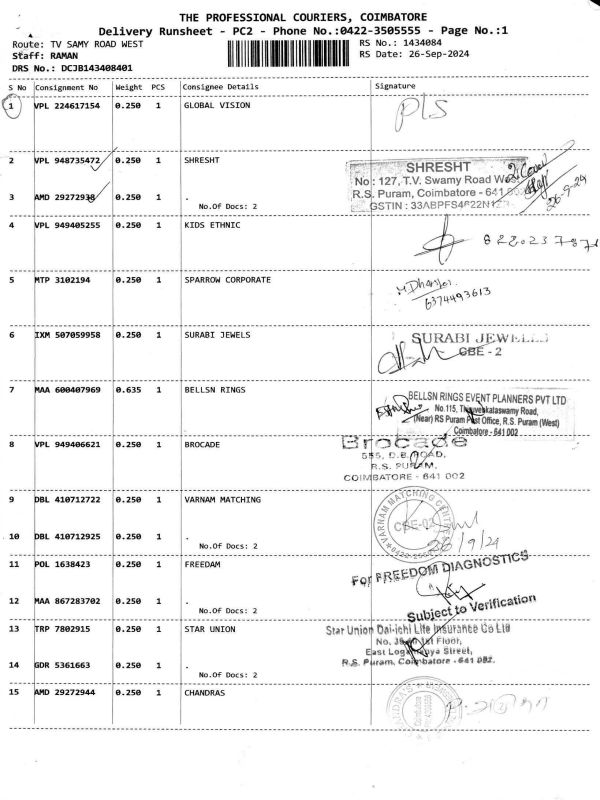 THE PROFESSIONAL COURIERS, COIMBATORE
Delivery Runsheet - PC2 - Phone No.:0422-3505555 - Page No.:1
Route: TV SAMY ROAD WEST
RS No.: 1434084
Staff: RAMAN
RS Date: 26-Sep-2024
DRS No.: DCJB143408401
S No Consignment No Weight PCS Consignee Details Signature
1 VPL 224617154 0.250 1 GLOBAL VISION
pls
2 VPL 948735472 0.250 1 SHRESHT
SHRESHT
No : 127, T.V. Swamy Road West
R.S. Puram, Coimbatore - 641
GSTIN : 33ABPFS4822N1Z
26-9-24
3 AMD 29272938 0.250 1 .
No.Of Docs: 2
4 VPL 949405255 0.250 1 KIDS ETHNIC
5 MTP 3102194 0.250 1 SPARROW CORPORATE
6374493613
6 IXM 507059958 0.250 1 SURABI JEWELS
SURABI JEWELS
CBE - 2
7 MAA 600407969 0.635 1 BELLSN RINGS
BELLSN RINGS EVENT PLANNERS PVT LTD
No.115, Thiruvenkataswamy Road,
(Near) RS Puram Post Office, R.S. Puram (West)
Coimbatore - 641 002
8 VPL 949406621 0.250 1 BROCADE
Brocade
555, D.B. ROAD,
R.S. PURAM,
COIMBATORE - 641 002
9 DBL 410712722 0.250 1 VARNAM MATCHING
VARNAM MATCHING
CBE-02
26/9/24
10 DBL 410712925 0.250 1 .
No.Of Docs: 2
11 POL 1638423 0.250 1 FREEDAM
For FREEDOM DIAGNOSTICS
12 MAA 867283702 0.250 1 .
No.Of Docs: 2
Subject to Verification
13 TRP 7802915 0.250 1 STAR UNION
Star Union Dai-ichi Life Insurance Co Ltd
1st Floor,
Street,
R.S. Puram, Coimbatore - 641 002.
14 GDR 5361663 0.250 1 .
No.Of Docs: 2
15 AMD 29272944 0.250 1 CHANDRAS